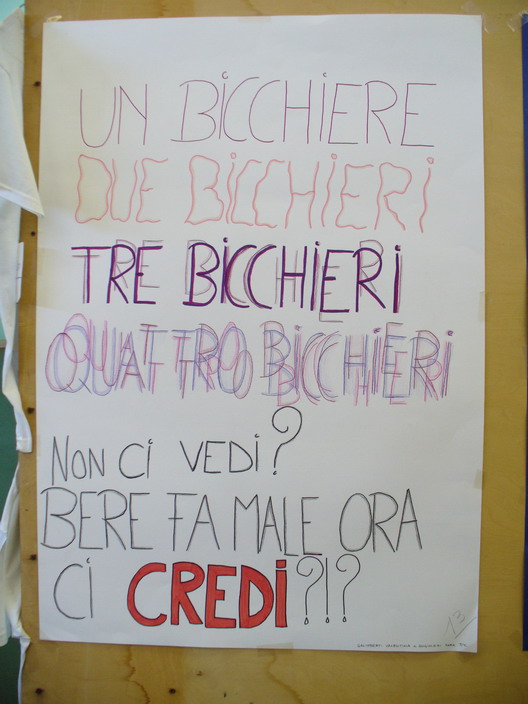 UN BICCHIERE
DUE BICCHIERI
TRE BICCHIERI
QUATTRO BICCHIERI
NON CI VEDI?
BERE FA MALE ORA
CI CREDI?!?